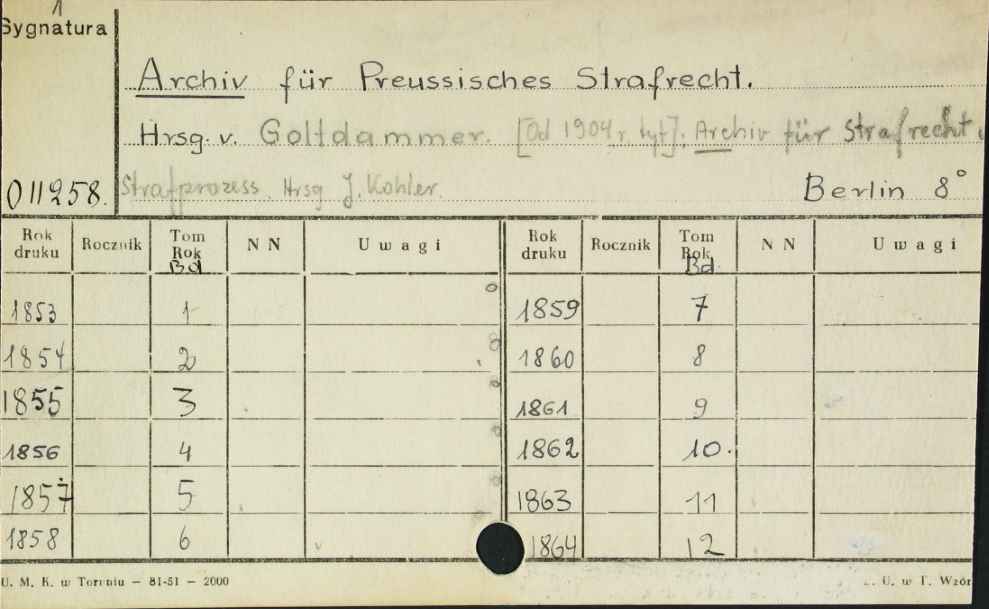 1
Sygnatura
Archiv für Preussisches Strafrecht.
Hrsg. v. Goltdammer. [Od 1904 r. tyt]: Archiv für Strafrecht u.
011258. Strafprozess. Hrsg J. Kohler. Berlin 8°
Rok druku Rocznik Tom Rok Bd NN Uwagi Rok druku Rocznik Tom Rok Bd. NN Uwagi
1853 1 1859 7
1854 2 1860 8
1855 3 1861 9
1856 4 1862 10.
1857 5 1863 11
1858 6 1864 12
U. M. K. w Toruniu — 81-51 — 2000 U. w T. Wzór